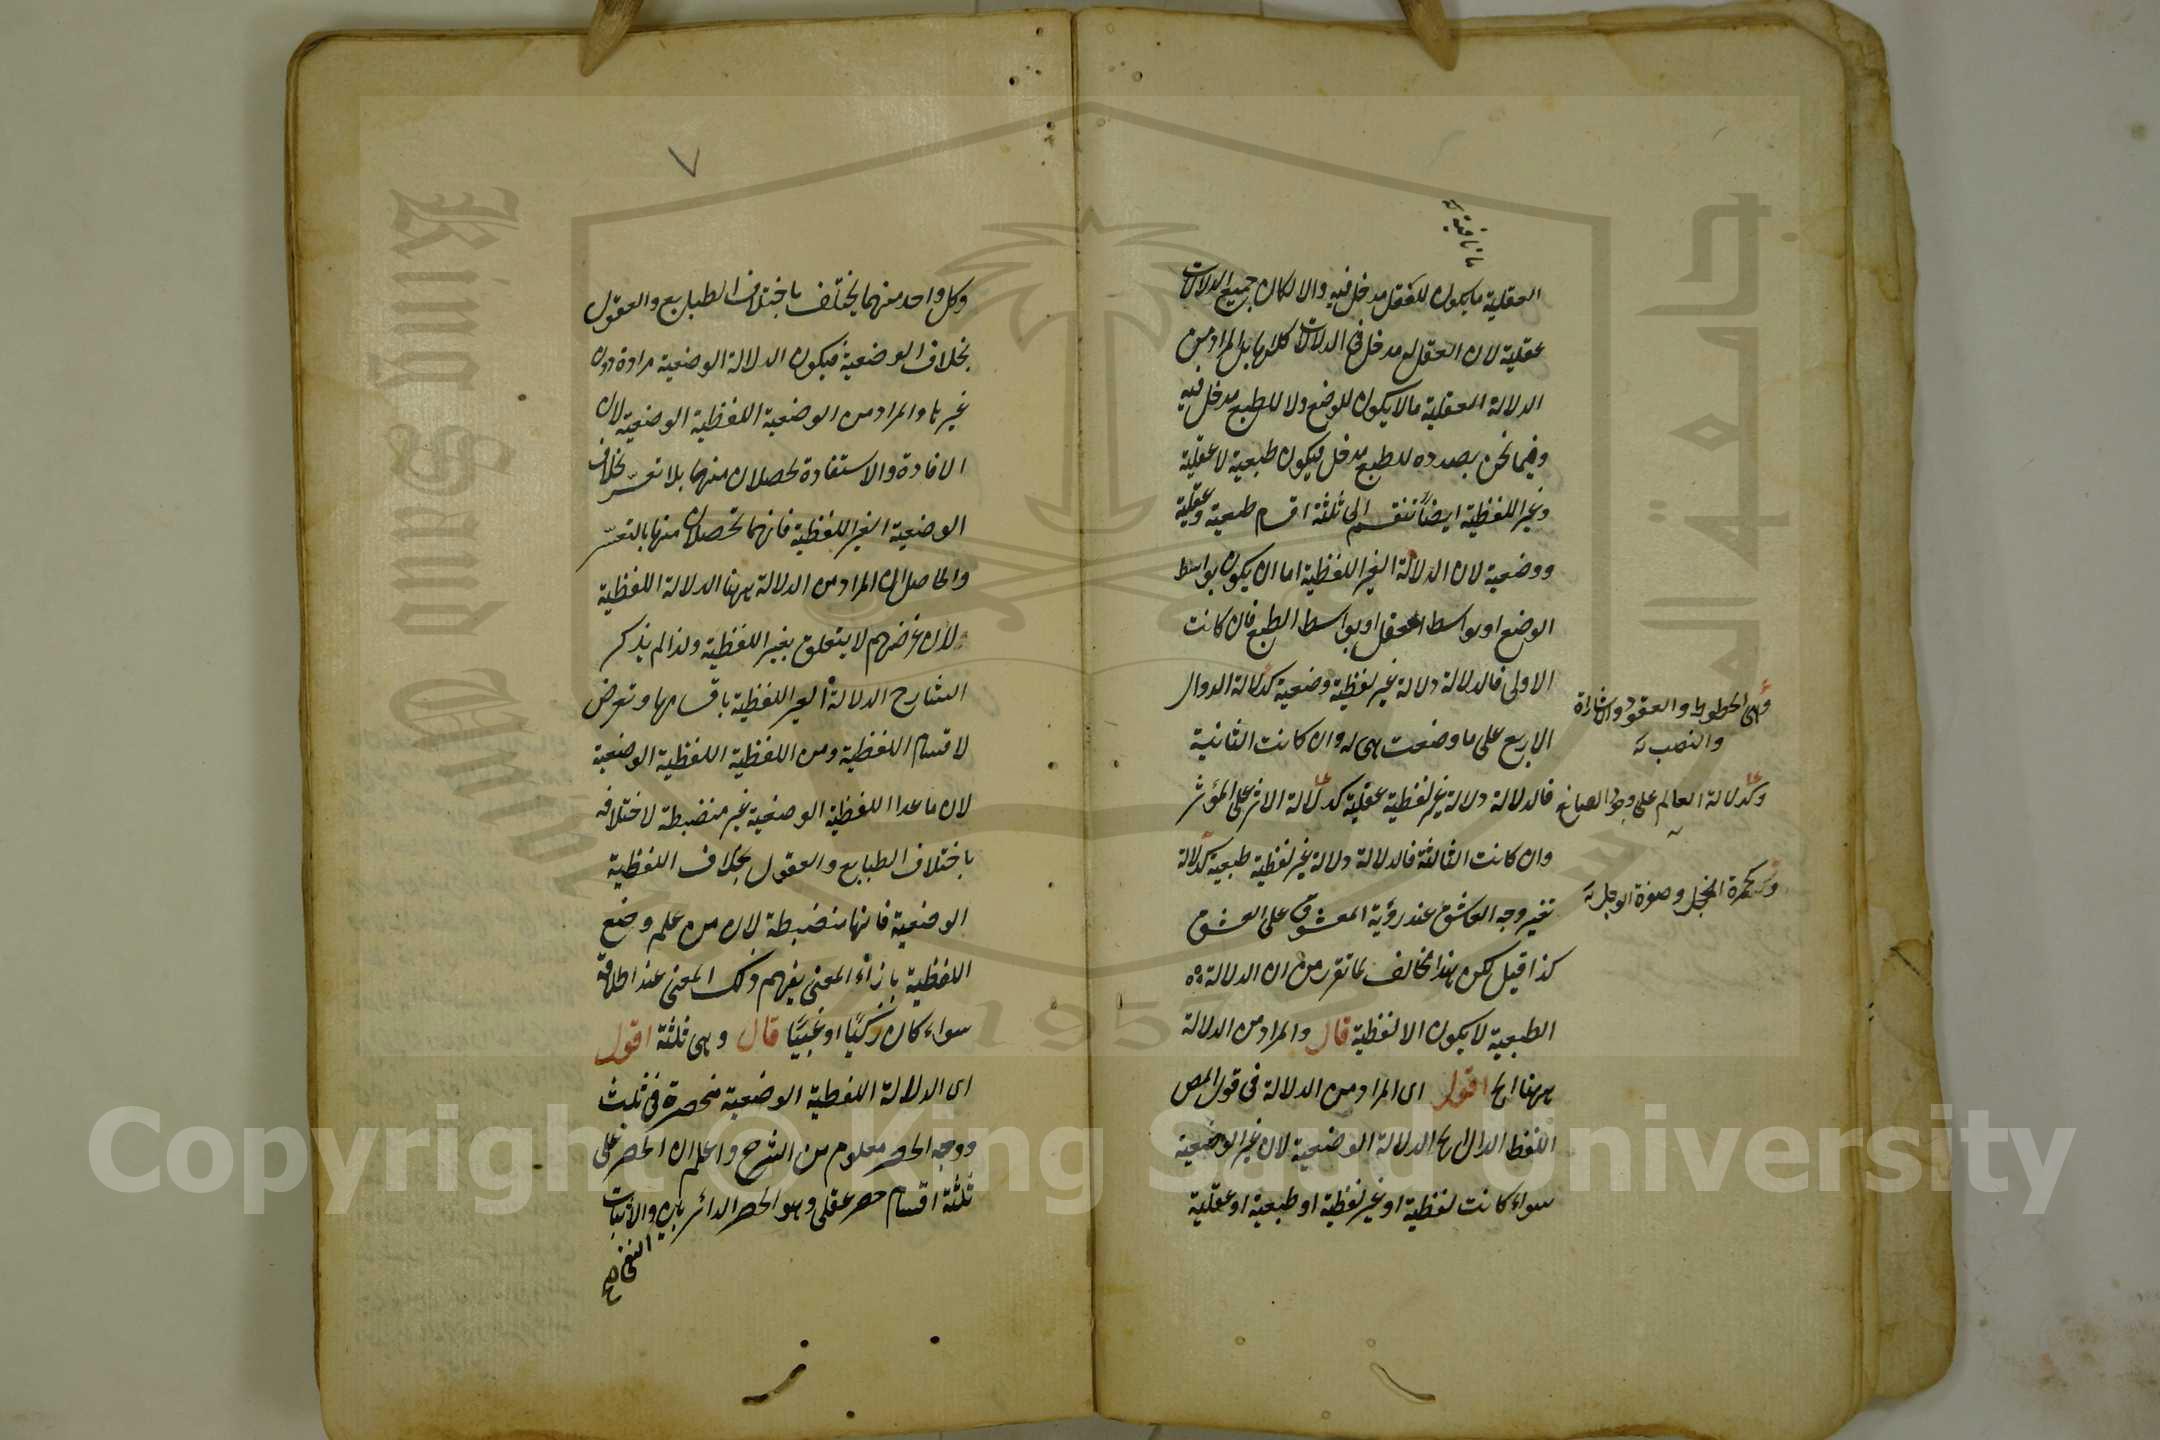 العقلية ما يكون للعقل مدخل فيه والا لكان جميع الدلالات
عقلية لان العقل له مدخل في الدلالات كلها بل المراد من
الدلالة العقلية ما لا يكون للوضع ولا للطبع مدخل فيه
وفيما نحن بصدده للطبع مدخل فيكون طبعية لا عقلية
وغير اللفظية ايضا تنقسم الى ثلثة اقسام طبعية وعقلية
ووضعية لان الدلالة الغير اللفظية اما ان يكون بواسط
الوضع او بواسط العقل او بواسط الطبع فان كانت
الاولى فالدلالة دلالة غير لفظية وضعية كدلالة الدوال
الاربع على ما وضعت هي له وان كانت الثانية
فالدلالة دلالة غير لفظية عقلية كدلالة الاثر على المؤثر
وان كانت الثالثة فالدلالة دلالة غير لفظية طبعية كدلالة
تغير وجه العاشق عند رؤية المعشوق على العشق
كذا قيل لكن هذا مخالف لما تقرر من ان الدلالة
الطبعية لا يكون الا لفظية قال والمراد من الدلالة
ههنا الخ اقول اى المراد من الدلالة فى قول المص
اللفظ الدال الخ الدلالة الوضعية لان غير الوضعية
سواء كانت لفظية او غير لفظية او طبعية او عقلية
وهي الخطوط والعقود والاشارة
والنصب
وكدلالة العالم على وجود الصانع
وكحمرة الخجل وصفرة الوجل
٧
وكل واحد منهما يختلف باختلاف الطبايع والعقول
بخلاف الوضعية فيكون الدلالة الوضعية مرادة دون
غيرها والمراد من الوضعية اللفظية الوضعية لان
الافادة والاستفادة تحصلان منها بلا تعسر بخلاف
الوضعية الغير اللفظية فانهما تحصلان منها بالتعسر
والحاصل ان المراد من الدلالة ههنا الدلالة اللفظية
لان غرضهم لا يتعلق بغير اللفظية ولذا لم يذكر
الشارح الدلالة الغير اللفظية باقسامها وتعرض
لاقسام اللفظية ومن اللفظية اللفظية الوضعية
لان ما عدا اللفظية الوضعية غير منضبطة لاختلافه
باختلاف الطبايع والعقول بخلاف اللفظية
الوضعية فانها منضبطة لان من علم وضع
اللفظية بازاء المعنى يفهم ذلك المعنى عند اطلاقه
سواء كان زكيا او غبيا قال وهى ثلثة اقول
اى الدلالة اللفظية الوضعية منحصرة فى ثلث
ووجه الحصر معلوم من الشرح واعلم ان الحصر على
ثلثة اقسام حصر عقلى وهو الحصر الدائر بين والاثبات
النفى
Copyright © King Saud University
جامعة الملك سعود
King Saud University
1957